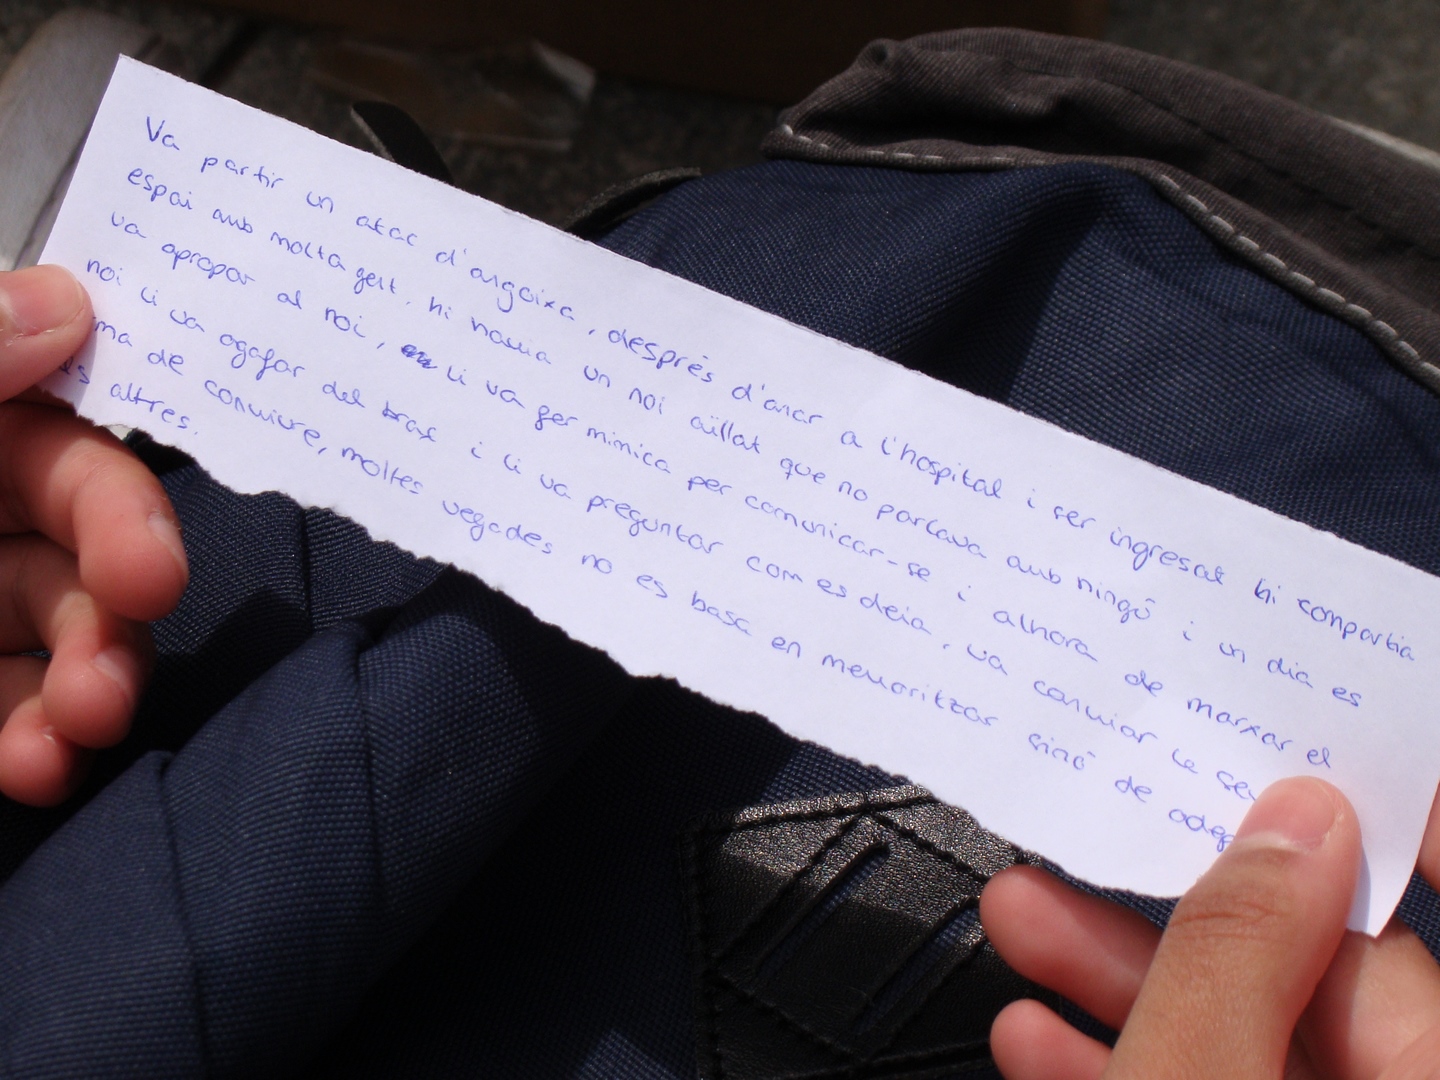 Va partir un atac d'angoixa, desprès d'anar a l'hospital i ser ingresat hi compartia
espai amb molta gent, hi havia un noi aïllat que no parlava amb ningú i un dia es
va apropar al noi, li va fer mimica per comunicar-se i alhora de marxar el
noi li va agafar del braç i li va preguntar com es deia, va canviar la seva
ma de conviure, moltes vegades no es basa en memoritzar sinó de
els altres.